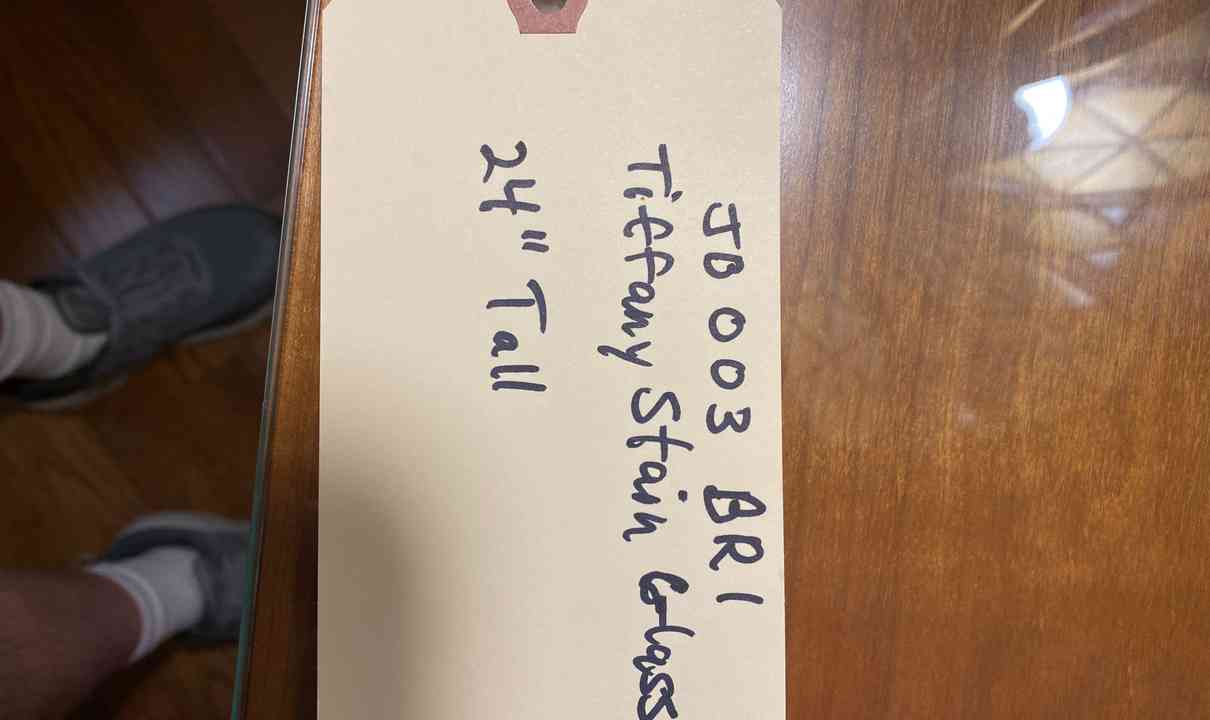 JD 003 BR1
Tiffany Stain Glass
24" Tall